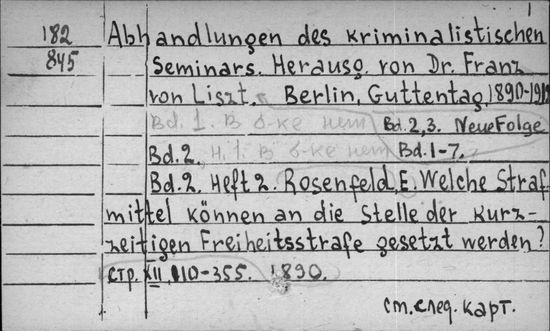 182 Abhandlungen des kriminalistischen
845 Seminars. Herausg. von Dr. Franz
von Liszt. Berlin, Guttentag, 1890-1912
Bd. 1. В б-ке нет Bd. 2,3. Neue Folge
Bd. 2. H. 1. В б-ке нет Bd. 1-7.
Bd. 2. Heft 2. Rosenfeld, E. Welche Straf-
mittel können an die Stelle der kurz-
zeitigen Freiheitsstrafe gesetzt werden?
стр. XII, 110-355. 1890.
см. след. карт.